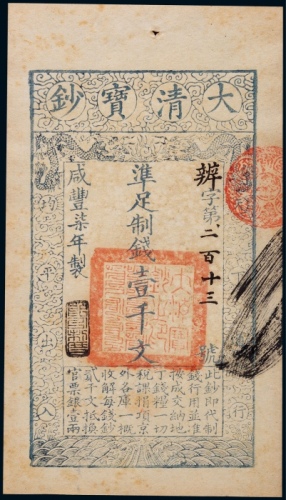 大清寶鈔
行
辨字第二百十三號
準足制錢壹千文
咸豐柒年製
此鈔即代制
錢行用並准
按成交納地
丁錢糧一切
稅課捐項京
外各庫一概
收解每錢鈔
貳千文抵換
官票銀壹兩
均平出入